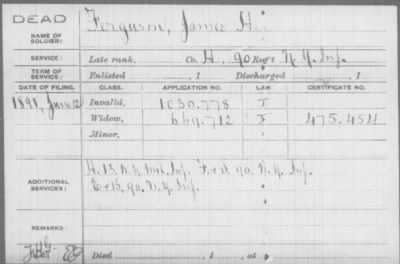 DEAD
NAME OF SOLDIER: Ferguson, James H.
SERVICE: Late rank, Co. H, 90 Reg't N.Y. Inf.
TERM OF SERVICE: Enlisted , 1 Discharged , 1
DATE OF FILING. CLASS. APPLICATION NO. LAW. CERTIFICATE NO.
1891, June 12 Invalid, 1030.778
Widow, 669.712 475.454
Minor,
ADDITIONAL SERVICES: N.Y. Inf. 90, N.Y. Inf.
E + B, 90, N.Y. Inf.
REMARKS:
Died , 1 , at